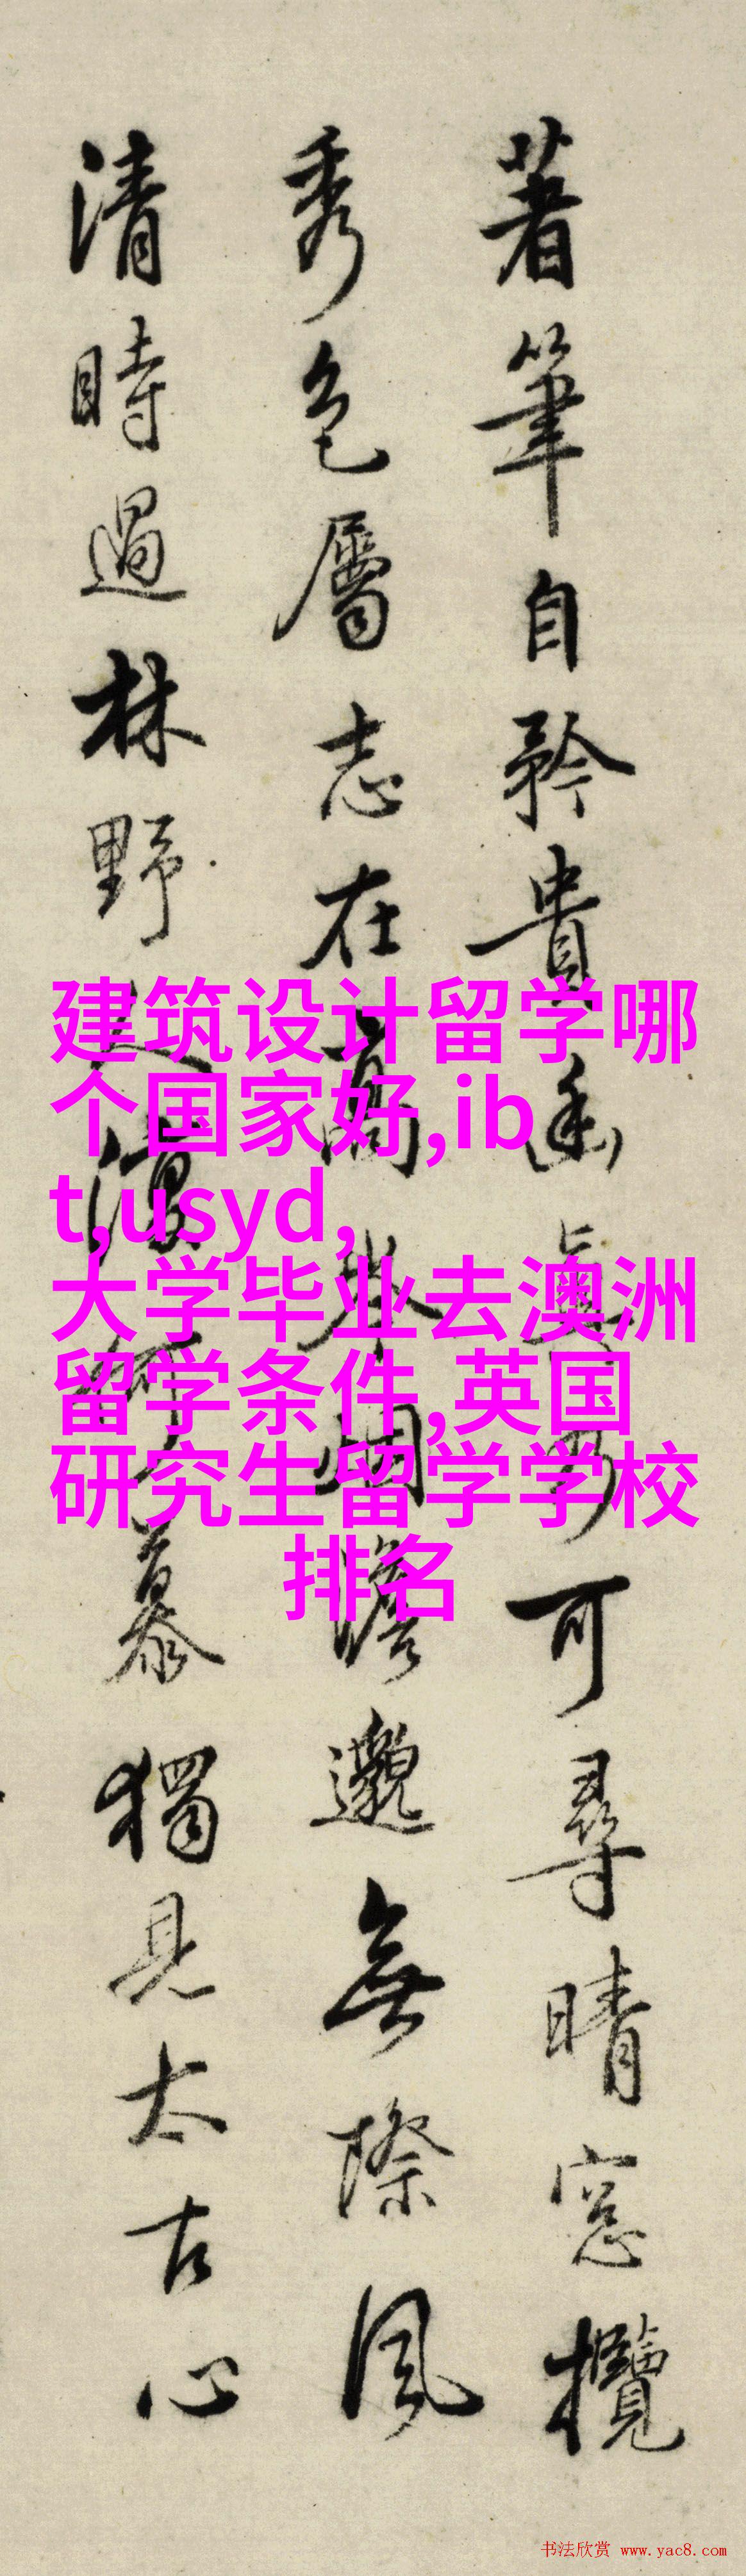 著筆自矜貴幽真 可尋晴窓攬
秀色屬志在高舉 澹邈無際風
清時過林野 漫 慕獨見太古心
建筑设计留学哪
个国家好,ib
t,usyd,
大学毕业去澳洲
留学条件,英国
研究生留学学校
排名
书法欣赏 www.yac8.com